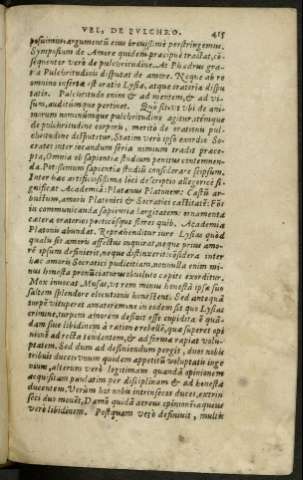 VEL, DE PVLCHRO. 415
posuimus: argumentũ eius breuissimè perstringemus.
Symposium de Amore quidem præcipuè tractat, cõ-
sequenter verò de pulchritudine. At Phædrus gra-
tia Pulchritudinis disputat de amore. Neque ab re
omnino inserta est oratio Lysiæ, atque oratoria dispu
tatio. Pulchritudo enim & ad mentem, & ad vi-
sum, auditúmque pertinet. Quò fit vt vbi de ani-
morum nominúmque pulchritudine agitur, itémque
de pulchritudine corporũ, meritò de orationũ pul-
chritudine disputetur. Statim verò ipso exordio So-
crates inter iocandum seria nimium tradit præce-
pta, Omnia ob sapientiæ studium penitus contemnen-
da. Potissimum sapientiæ studiũ considerare seipsum.
Inter hæc artificiosissima loci descriptio allegoricè si-
gnificat Academiã: Platanus Platonem: Castũ ar-
bustum, amoris Platonici & Socratici castitatẽ: Fõs
in communicanda sapientia largitatem: ornamenta
cætera oratorios poeticósque flores quib. Academia
Platonis abundat. Reprehenditur iure Lysias quòd
qualis sit amoris affectus inquirat, neque prius amo-
rẽ ipsum definierit, neque distinxerit: cõsidera inter
hæc amoris Socratici pudicitiam, nonnulla enim mi-
nus honesta pronũciaturus obuoluto capite exorditur.
Mox inuocat Musas, vt rem minus honestã ipsæ sua
saltem splendore elocutionis honestent. Sed antequã
turpẽ vituperet amatorem: ne in eodem sit quo Lysias
crimine, turpem amorem definit esse cupiditatẽ quã-
dam siue libidinem à ratione rebellẽ, quæ superet opi
nionẽ ad recta tendentem, & ad formæ rapiat volu-
ptatem. Sed dum ad definiendum pergit, duos nobis
tribuit duces: vnum quidem appetitũ voluptatis inge
nium, alterum verò legitimam quandã opinionem
acquisitam paulatim per disciplinam & ad honesta
ducentem. Verùm hos nobis intrinsecus duces, extrin
secùs duo mouẽt, Dæmõ quidã æreus opinionẽ: aqueus
verò libidinem. Postquam verò definiuit, multis